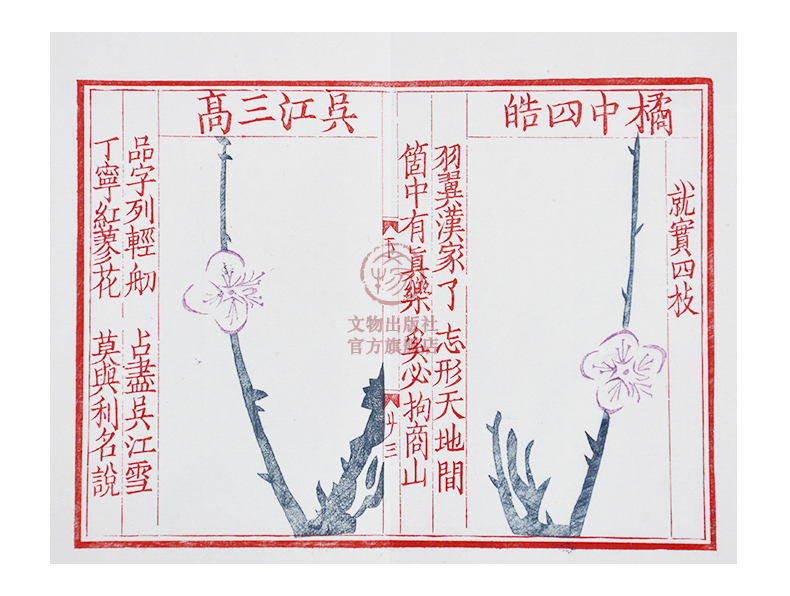 就實四枝
橘中四皓
羽翼漢家了 忘形天地間
箇中有眞樂 奚必拘商山
下
廿三
吳江三髙
品字列輕舠 占盡吳江雪
丁寧紅蓼花 莫與利名說
文物出版社
官方旗舰店